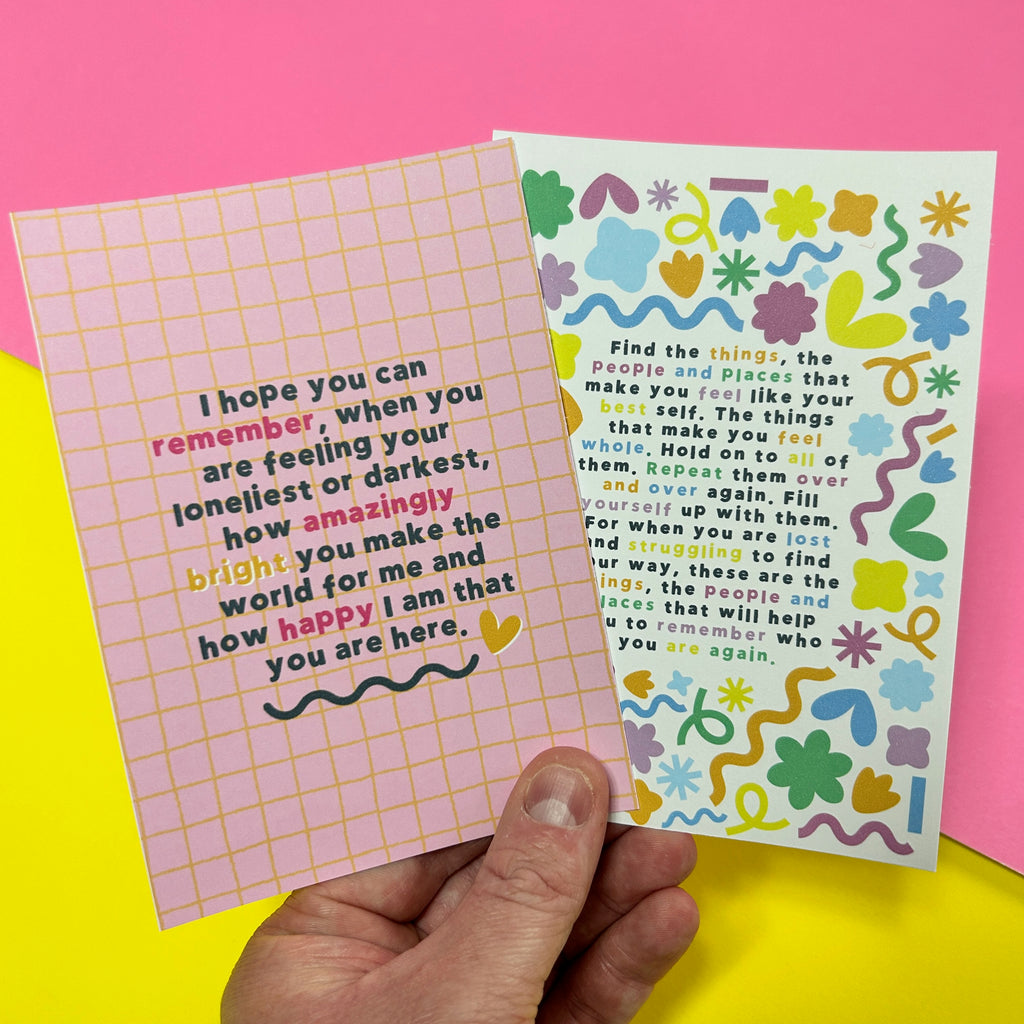 I hope you can
remember, when you
are feeling your
loneliest or darkest,
how amazingly
bright you make the
world for me and
how happy I am that
you are here.
Find the things, the
people and places that
make you feel like your
best self. The things
that make you feel
whole. Hold on to all of
them. Repeat them over
and over again. Fill
yourself up with them.
For when you are lost
and struggling to find
our way, these are the
ings, the people and
laces that will help
u to remember who
you are again.